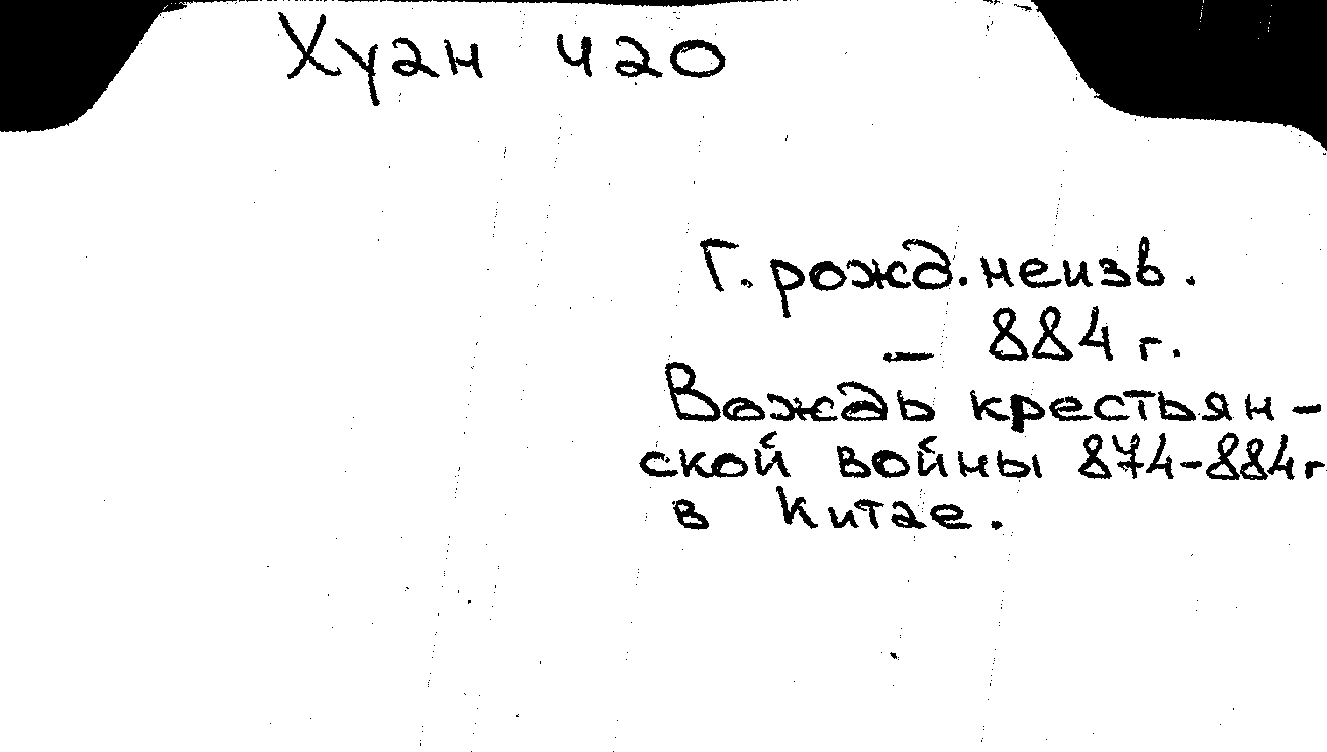 Хуан Чао
Г. рожд. неизв.
– 884 г.
Вождь крестьян-
ской войны 874-884г
в Китае.